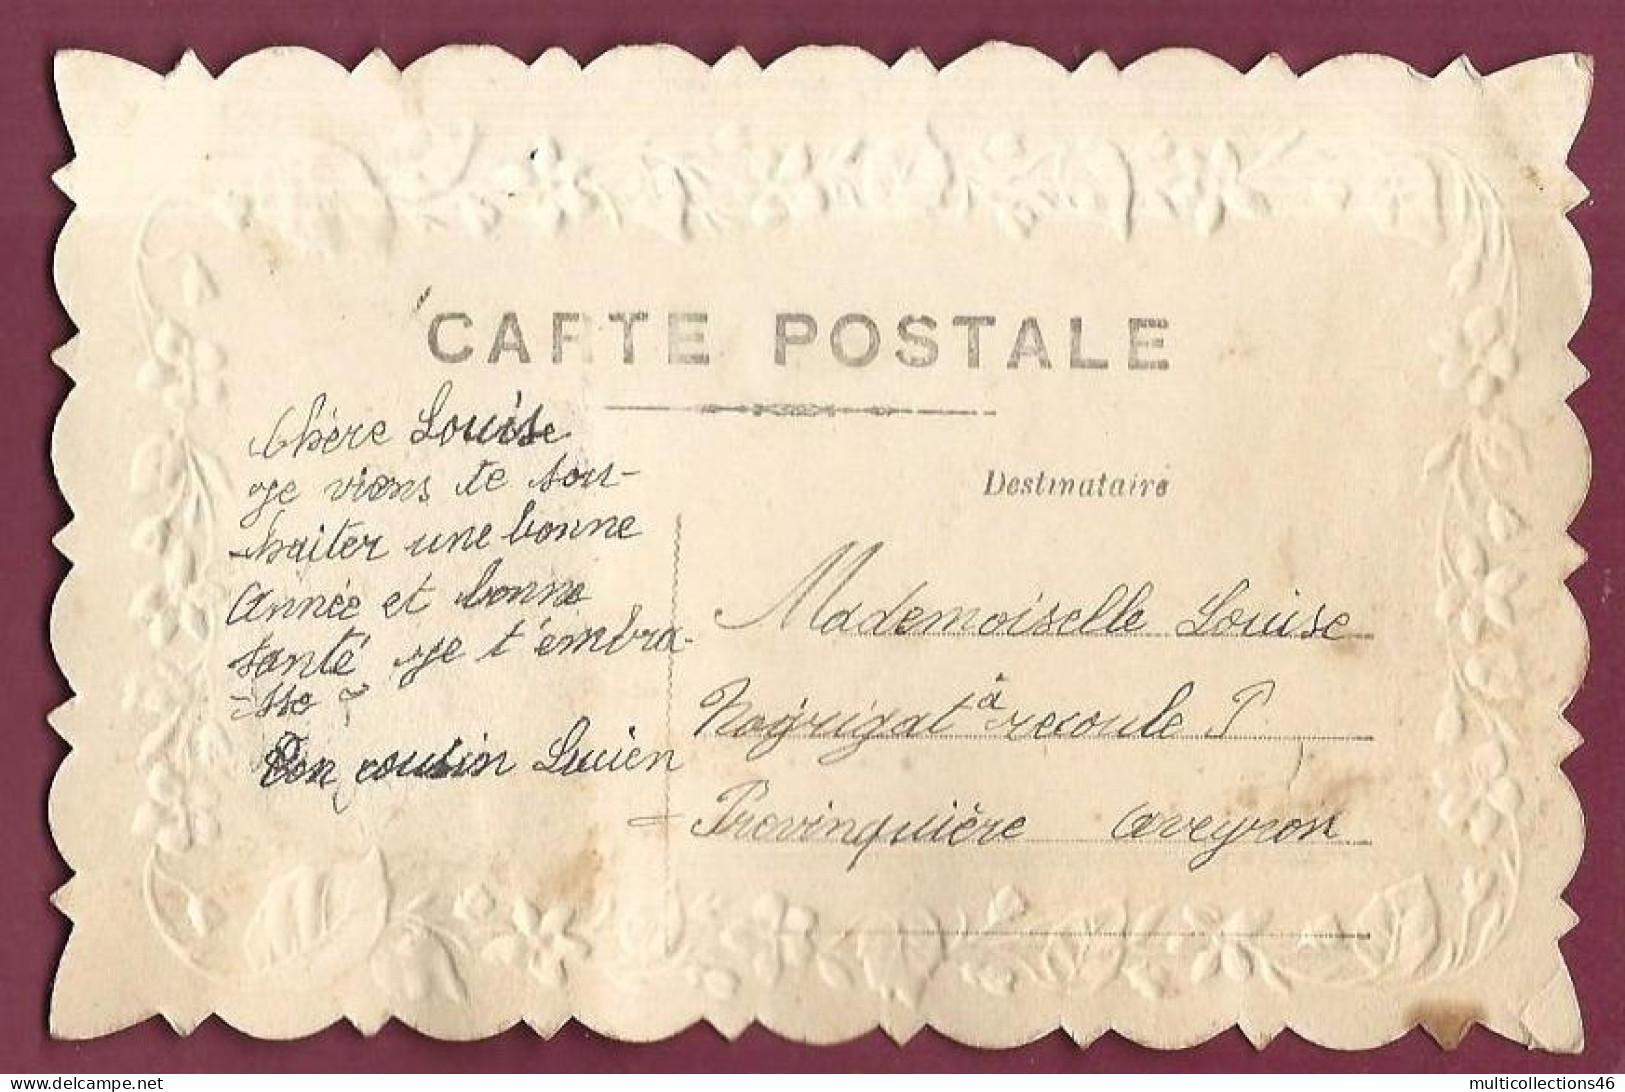 CARTE POSTALE
Chère Louise
je viens te sou-
-haiter une bonne
Année et bonne
santé je t'embra-
-sse
Ton cousin Lucien
Destinataire
Mademoiselle Louise
à recoule P.
= Previnquière aveyron
multicollections46